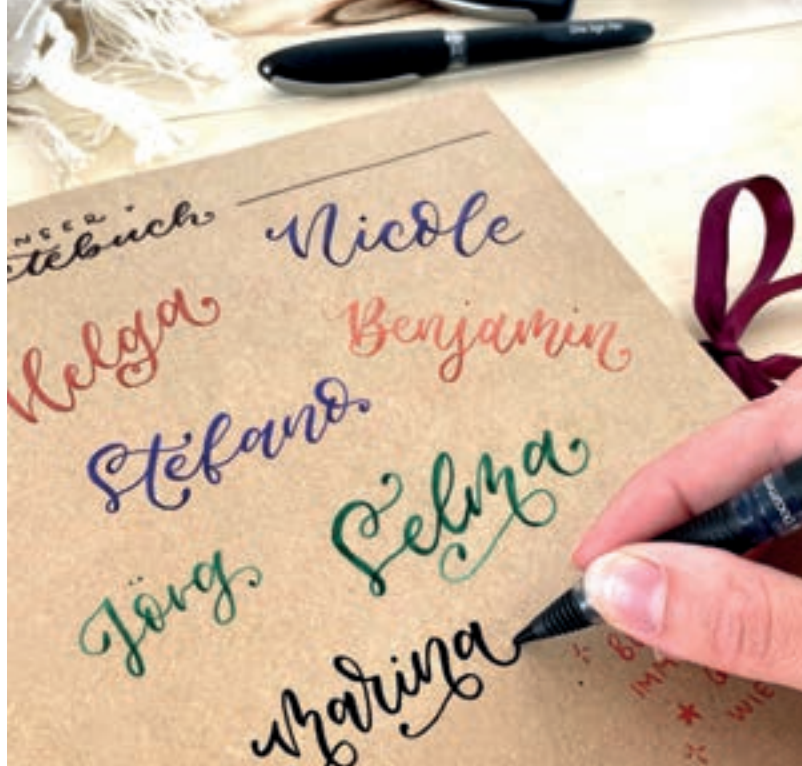 NSER
tebuch
Nicole
Helga
Benjamin
Stefano
Selma
Jörg
Marina
IMM
WIE